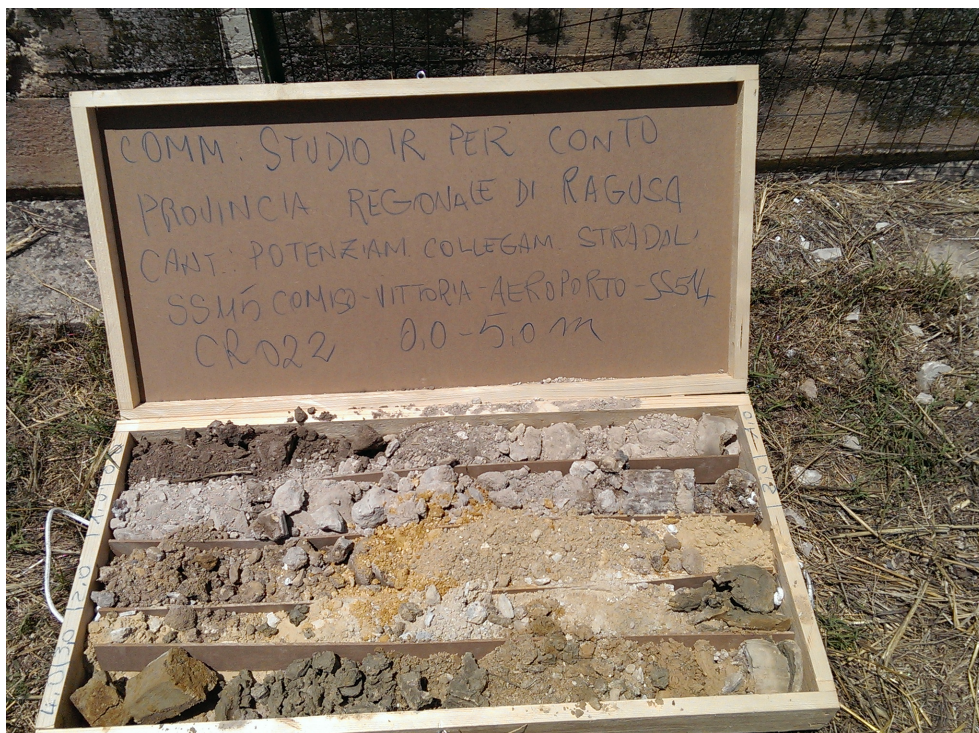 COMM. STUDIO IR PER CONTO
PROVINCIA REGIONALE DI RAGUSA
CANT.: POTENZIAM. COLLEGAM. STRADAL.
SS115 COMISO-VITTORIA-AEROPORTO-SS514
CR022 0,0-5,0 m